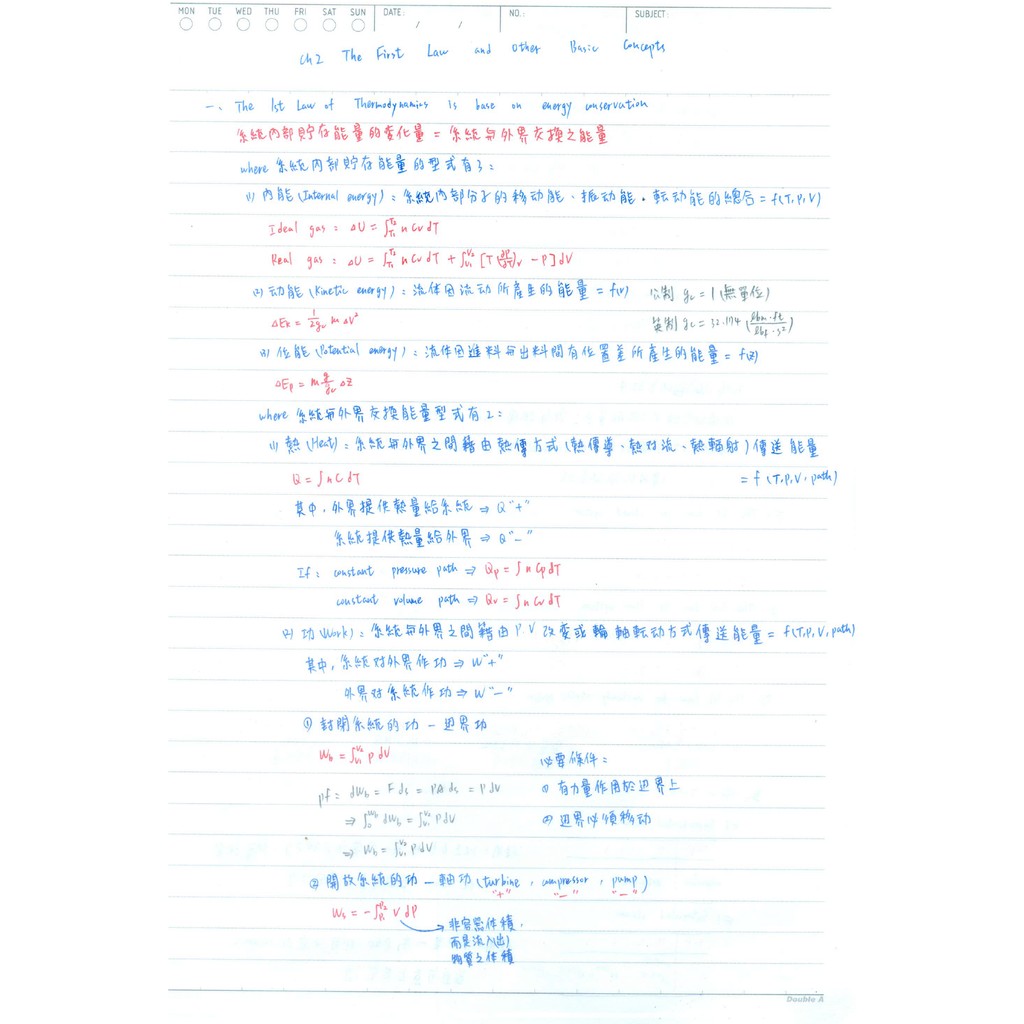 MON TUE WED THU FRI SAT SUN DATE: / / NO.: SUBJECT:
Ch2 The First Law and Other Basic Concepts
一、The 1st Law of Thermodynamics is base on energy conservation
系統內部貯存能量的变化量 = 系統與外界交換之能量
where 系統內部貯存能量的型式有3:
(1) 內能 (Internal energy): 系統內部分子的移动能、振动能、転动能的總合 = f(T,P,V)
Ideal gas: ΔU = ∫_{T1}^{T2} n Cv dT
Real gas: ΔU = ∫_{T1}^{T2} n Cv dT + ∫_{V1}^{V2} [T(dP/dT)_V - P] dV
(2) 动能 (Kinetic energy): 流体因流动所產生的能量 = f(v) 公制 gc = 1 (無單位)
ΔEk = 1/2gc m Δv² 英制 gc = 32.174 (lbm·ft/lbf·s²)
(3) 位能 (Potential energy): 流体因進料與出料間有位置差所產生的能量 = f(z)
ΔEp = m g/gc ΔZ
where 系統與外界交換能量型式有2:
(1) 熱 (Heat): 系統與外界之間藉由熱傳方式 (熱傳導、熱对流、熱輻射) 傳送能量
Q = ∫ n C dT = f (T,P,V,path)
其中, 外界提供熱量給系統 ⇒ Q "+"
系統提供熱量給外界 ⇒ Q "-"
If: constant pressure path ⇒ Qp = ∫ n Cp dT
constant volume path ⇒ Qv = ∫ n Cv dT
(2) 功 (Work): 系統與外界之間藉由 P.V 改变或輪軸転动方式傳送能量 = f(T,P,V,path)
其中, 系統对外界作功 ⇒ W "+"
外界对系統作功 ⇒ W "-"
① 封閉系統的功 — 边界功
Wb = ∫_{V1}^{V2} P dV 必要條件:
pf: dWb = F ds = PA ds = P dV ① 有力量作用於边界上
⇒ ∫_0^{Wb} dWb = ∫_{V1}^{V2} P dV ② 边界必須移动
⇒ Wb = ∫_{V1}^{V2} P dV
② 開放系統的功 — 軸功 (turbine, compressor, pump)
"+" "-" "-"
Ws = -∫_{P1}^{P2} V dP → 非容器体積,
而是流入(出)
物質之体積
Double A